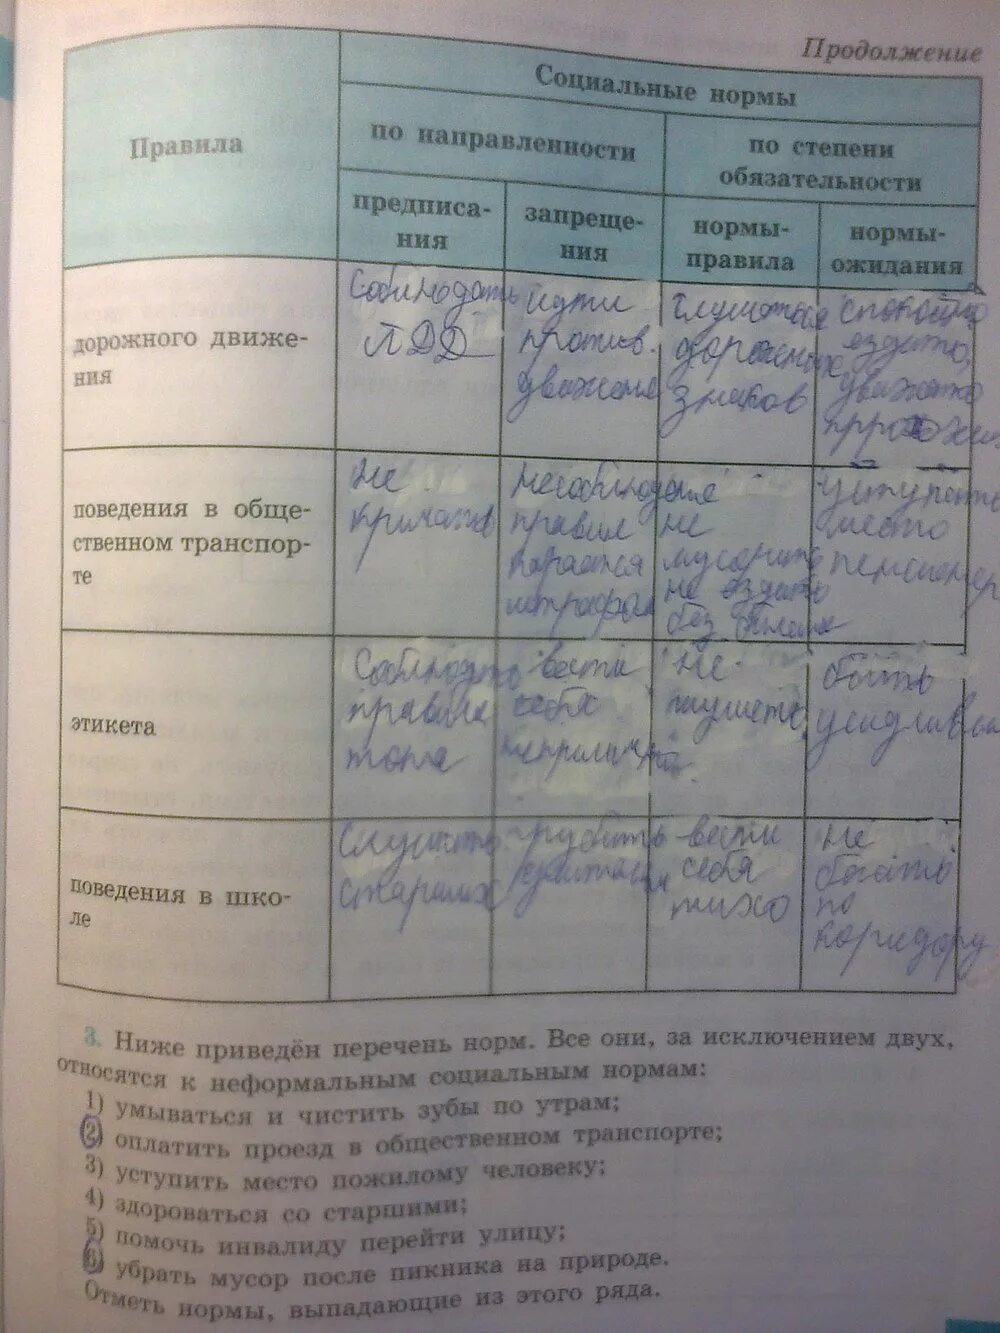 Продолжение
Правила
Социальные нормы
по направленности
по степени
обязательности
предписа-
ния
запреще-
ния
нормы-
правила
нормы-
ожидания
дорожного движе-
ния
Соблюдать
ПДД
идти
против.
движения
слушаться
дорожных
знаков
спокойно
ездить,
уважать
поведения в обще-
ственном транспор-
те
не
кричать
несоблюдение
правил
карается
штрафом
не
мусорить
не ездить
без билета
уступать
место
пенсионер
этикета
Соблюдать
правила
тона
вести
себя
неприлично
не
шуметь
быть
усидчивым
поведения в шко-
ле
Слушать
старших
грубить
учителям
вести
себя
тихо
не
бегать
по
коридору
3. Ниже приведён перечень норм. Все они, за исключением двух,
относятся к неформальным социальным нормам:
1) умываться и чистить зубы по утрам;
2) оплатить проезд в общественном транспорте;
3) уступить место пожилому человеку;
4) здороваться со старшими;
5) помочь инвалиду перейти улицу;
6) убрать мусор после пикника на природе.
Отметь нормы, выпадающие из этого ряда.